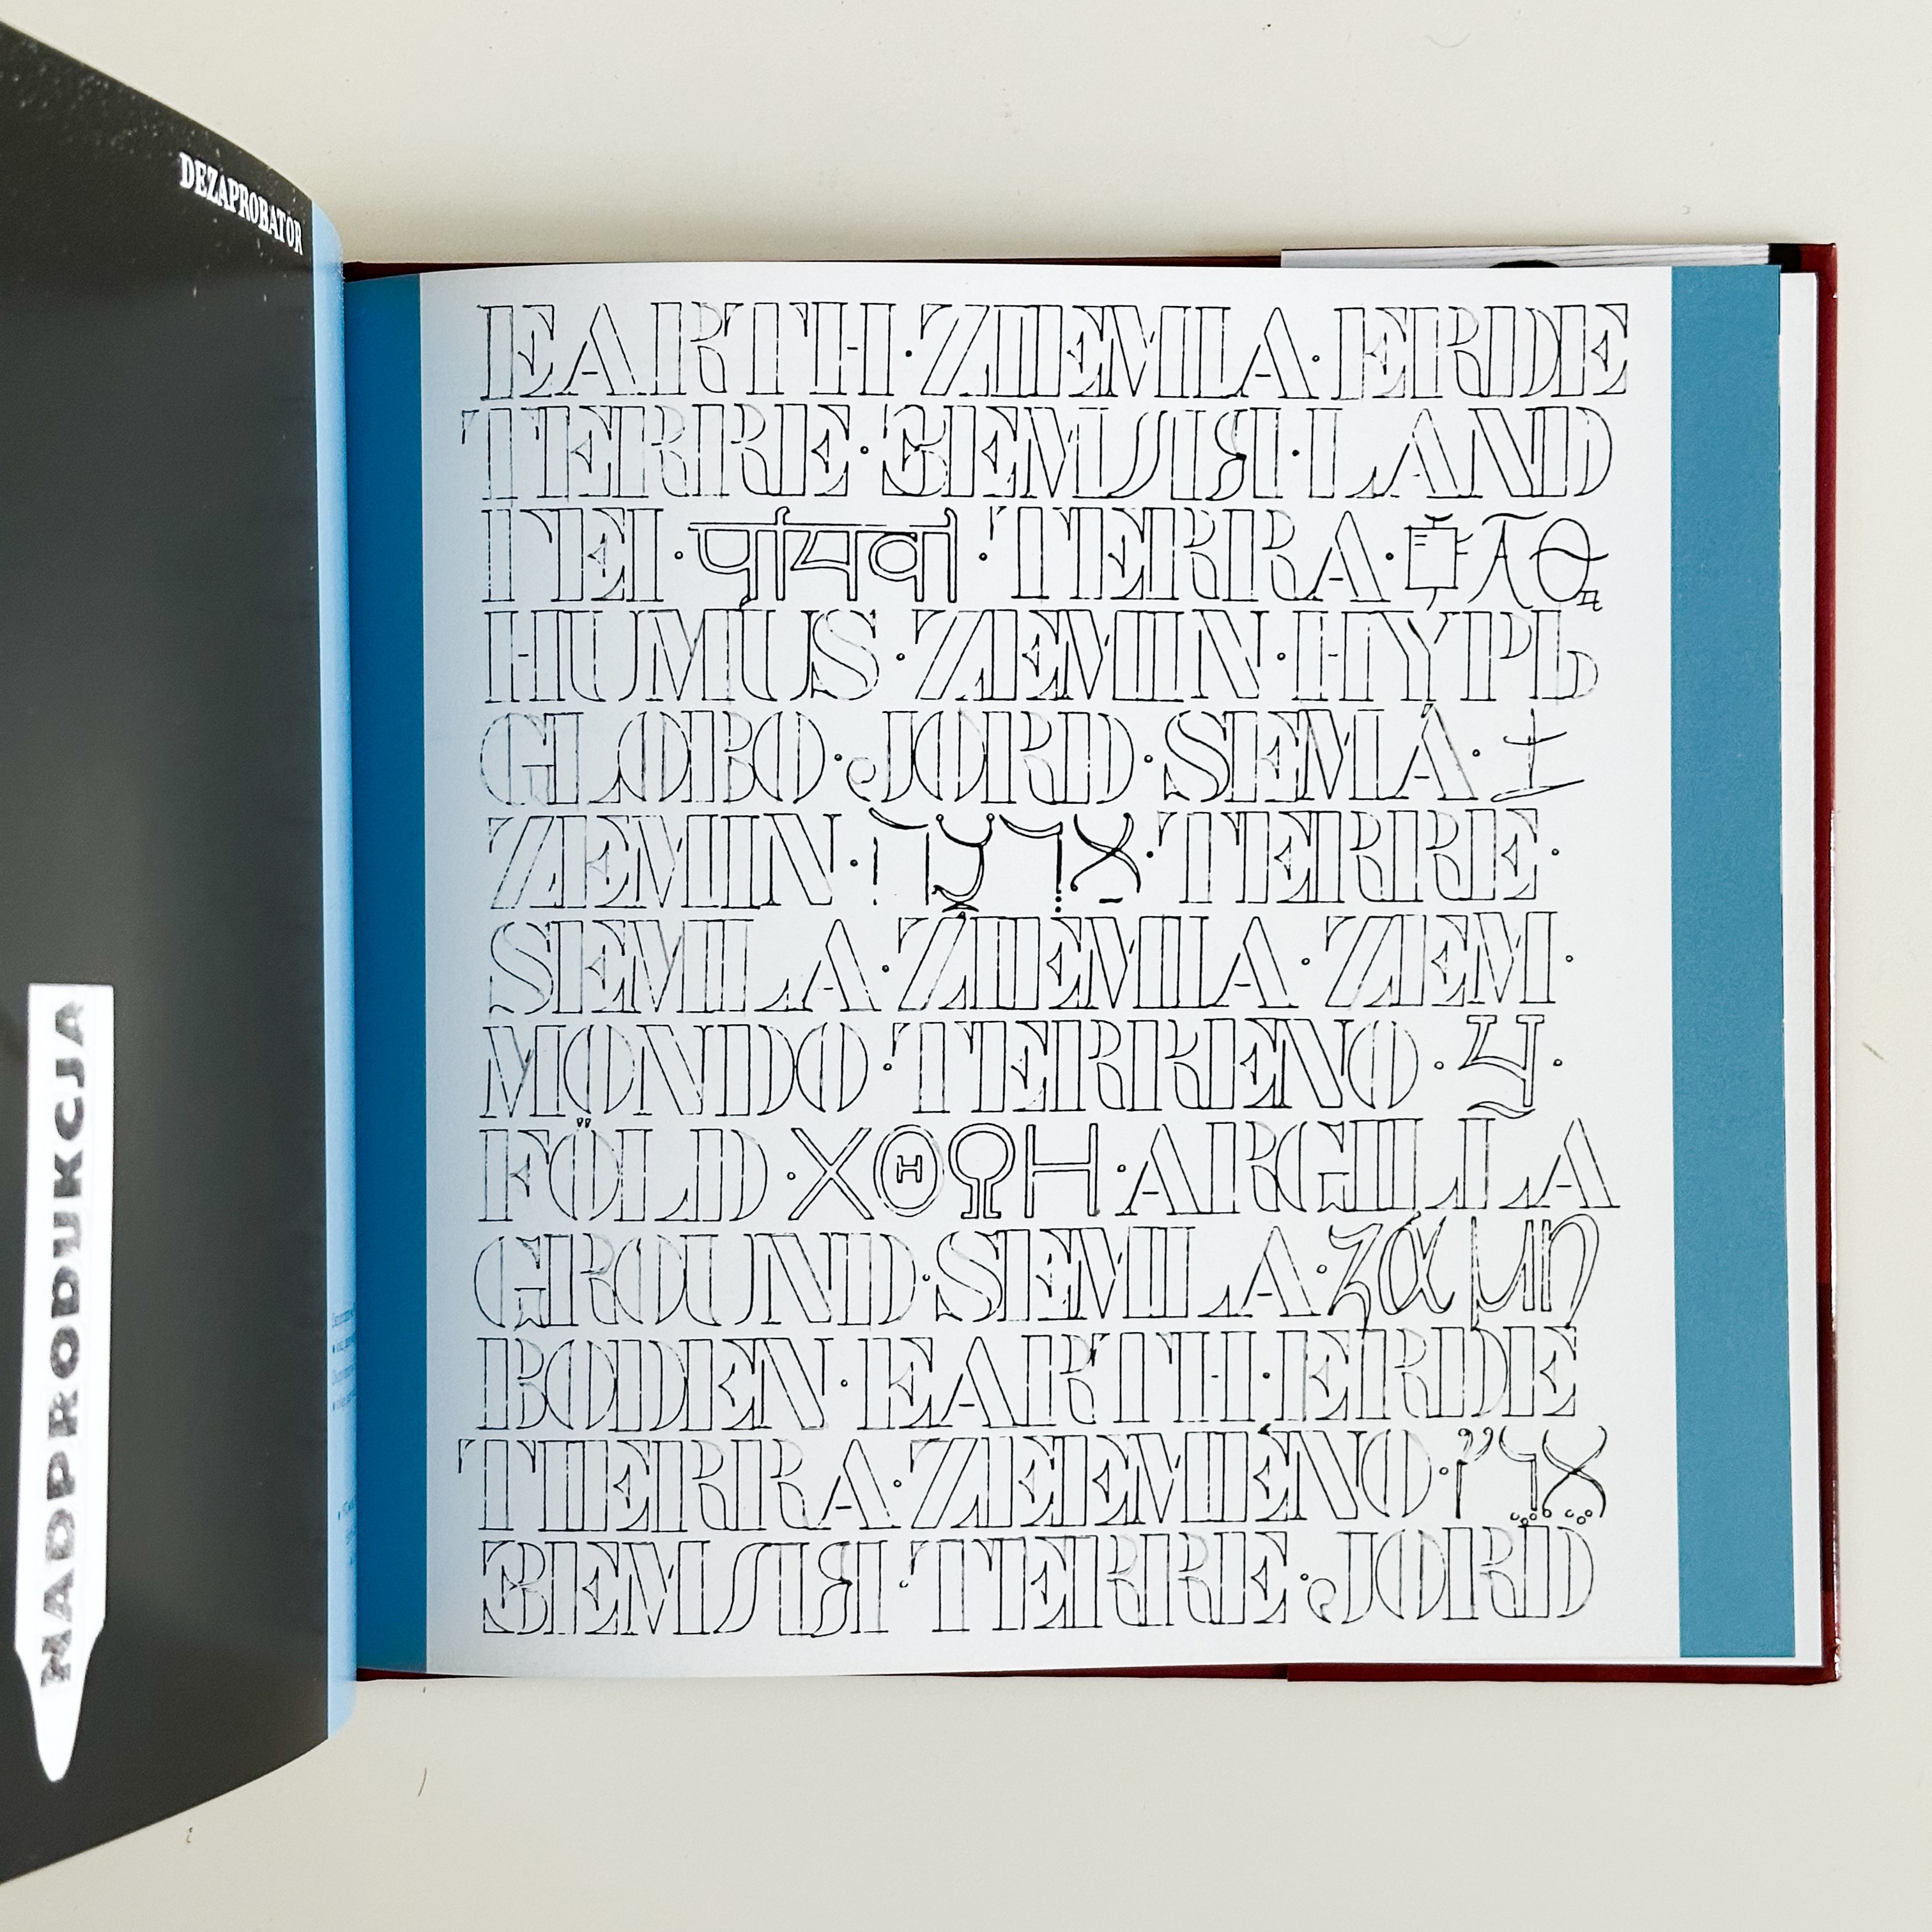 DEZAPROBATOR
NADPRODUKCJA
EARTH·ZIEMIA·ERDE
TERRE·ЗЕМЛЯ·LAND
ГЕI· ·TERRA·
HUMUS·ZEMIN·HYPЬ
GLOBO·JORD·SEMÁ·土
ZEMIN· ·TERRE·
SEMLA·ZIEMIA·ZEM·
MONDO·TERRENO· ·
FÖLD·ΧΘΩΗ·ARGILLA
GROUND·SEMLA·ζαμη
BODEN·EARTH·ERDE
TIERRA·ZEEMENO·
ЗЕМЛЯ·TERRE·JORD